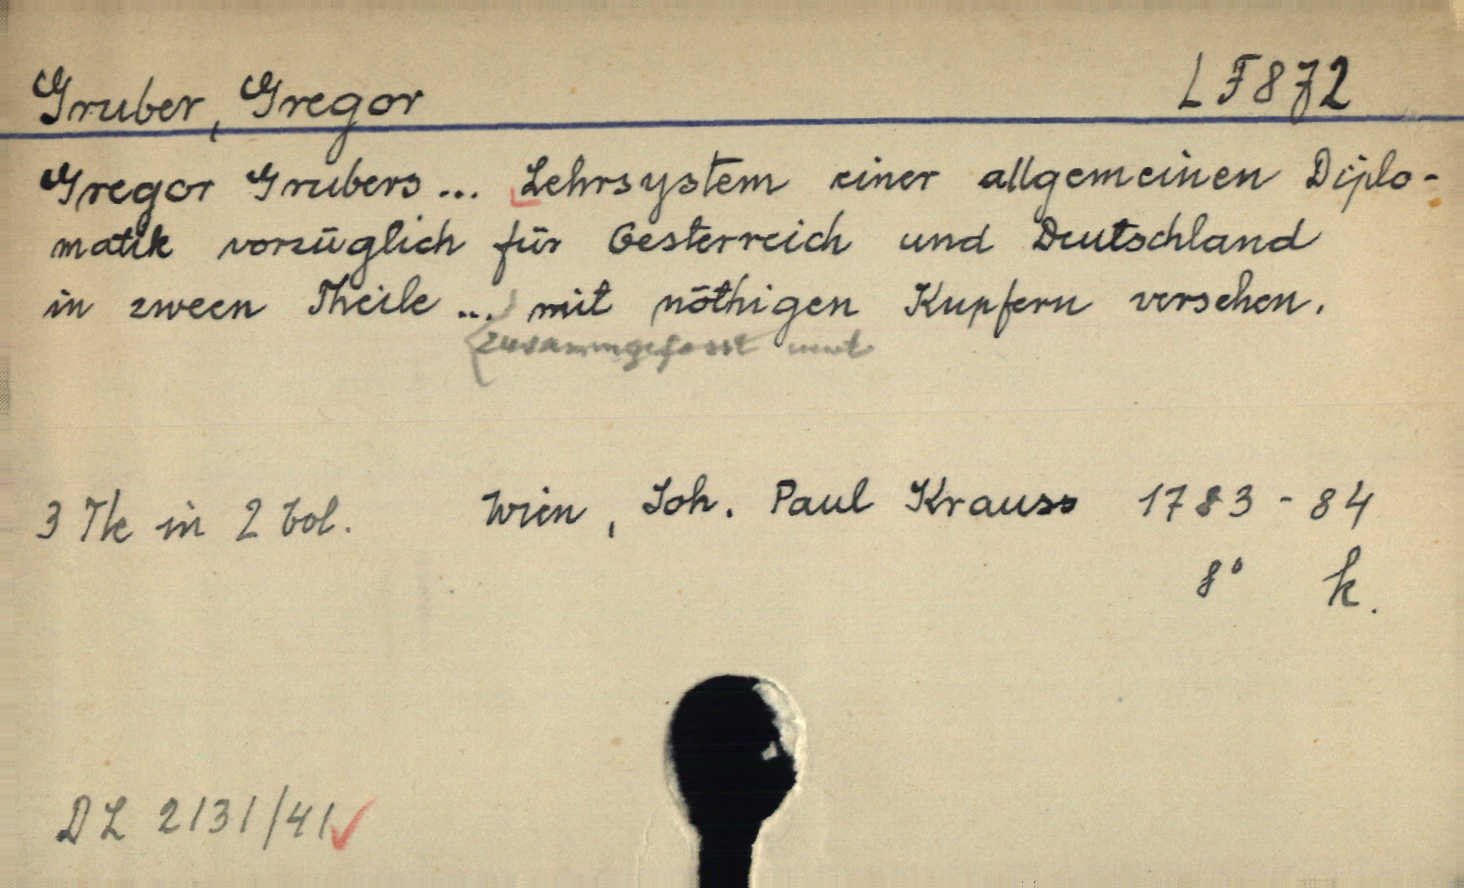 Gruber, Gregor LF872
Gregor Grubers... Lehrsystem einer allgemeinen Diplo-
matik vorzüglich für Oesterreich und Deutschland
in zween Theile ... mit nöthigen Kupfern versehen.
zusammgefasst und
3 Tle in 2 vol. Wien, Joh. Paul Krauss 1783-84
8° k.
DL 2131/41